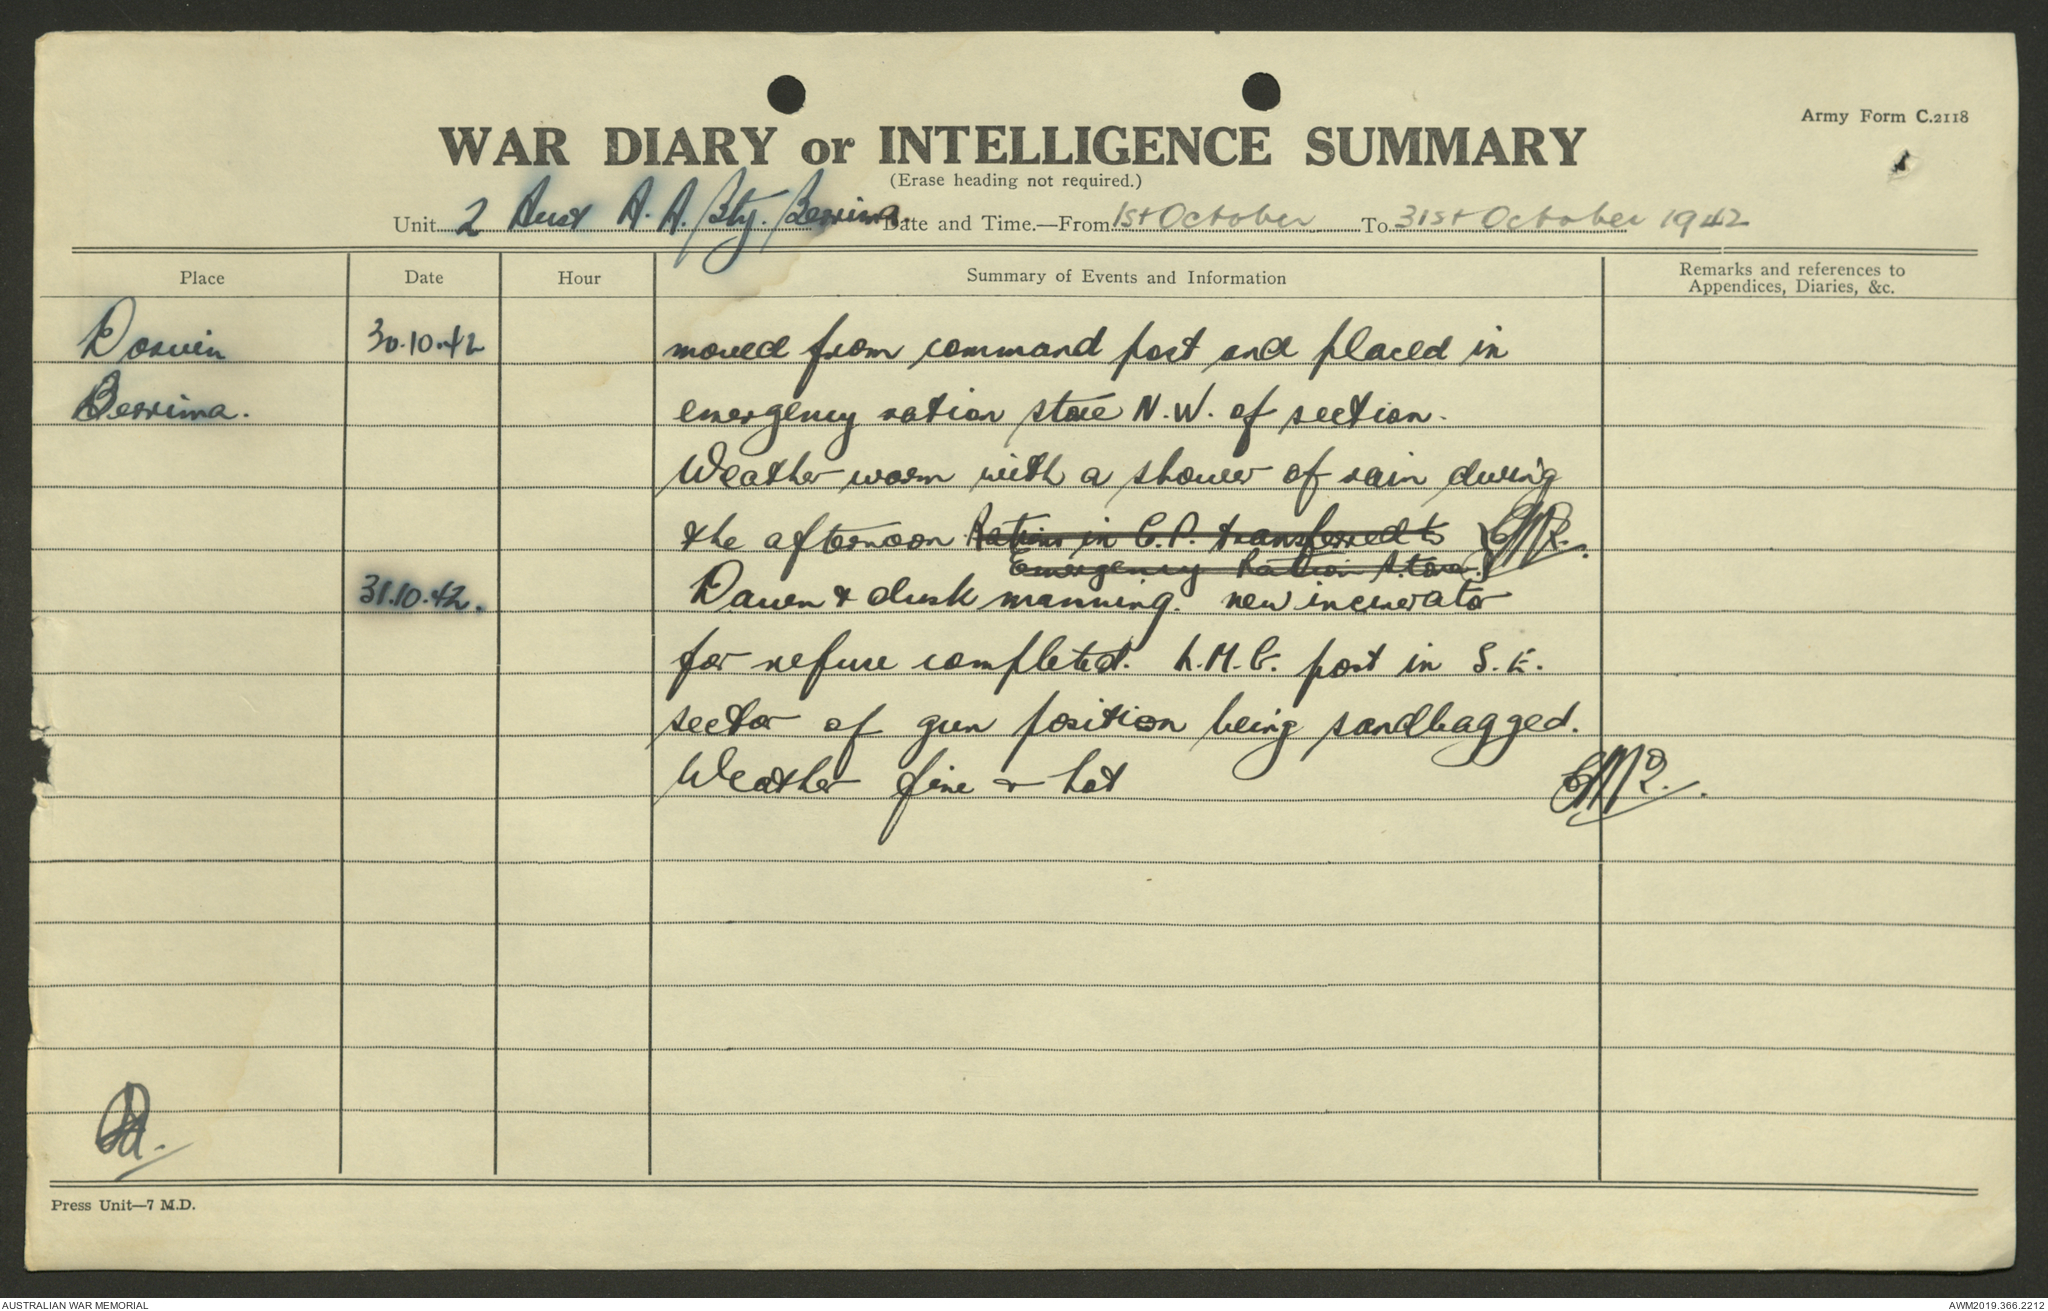 Army Form C.2118
WAR DIARY or INTELLIGENCE SUMMARY
(Erase heading not required.)
Unit 2 Aust A.A. Bty. Berrima. Date and Time.—From 1st October To 31st October 1942
Place Date Hour Summary of Events and Information Remarks and references to
Appendices, Diaries, &c.
Darwin 30.10.42 moved from command post and placed in
Berrima. emergency ration store N.W. of section.
Weather warm with a shower of rain during
the afternoon. Rations in C.P. transferred to
Emergency Ration Store.
31.10.42. Dawn & dusk manning. new incinerator
for refuse completed. L.M.G. post in S.E.
sector of gun position being sandbagged.
Weather fine & hot
Press Unit—7 M.D.
AUSTRALIAN WAR MEMORIAL AWM2019.366.2212